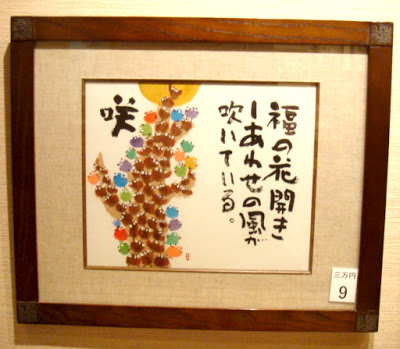 福の花開き
しあわせの風が
吹いている。
咲
三万円
9